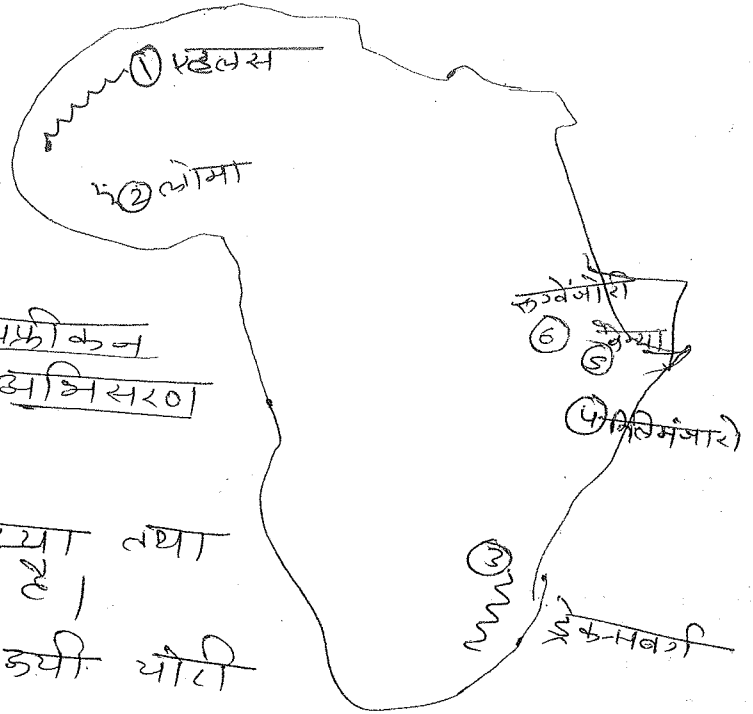 ① एटलस
② लोमा
रुवेंजोरी
⑥ केन्या
⑤
④ किलिमंजारो
③
ड्रेकन्सबर्ग
अफ्रीकन
अभिसरण
तथा
है।
चोटी